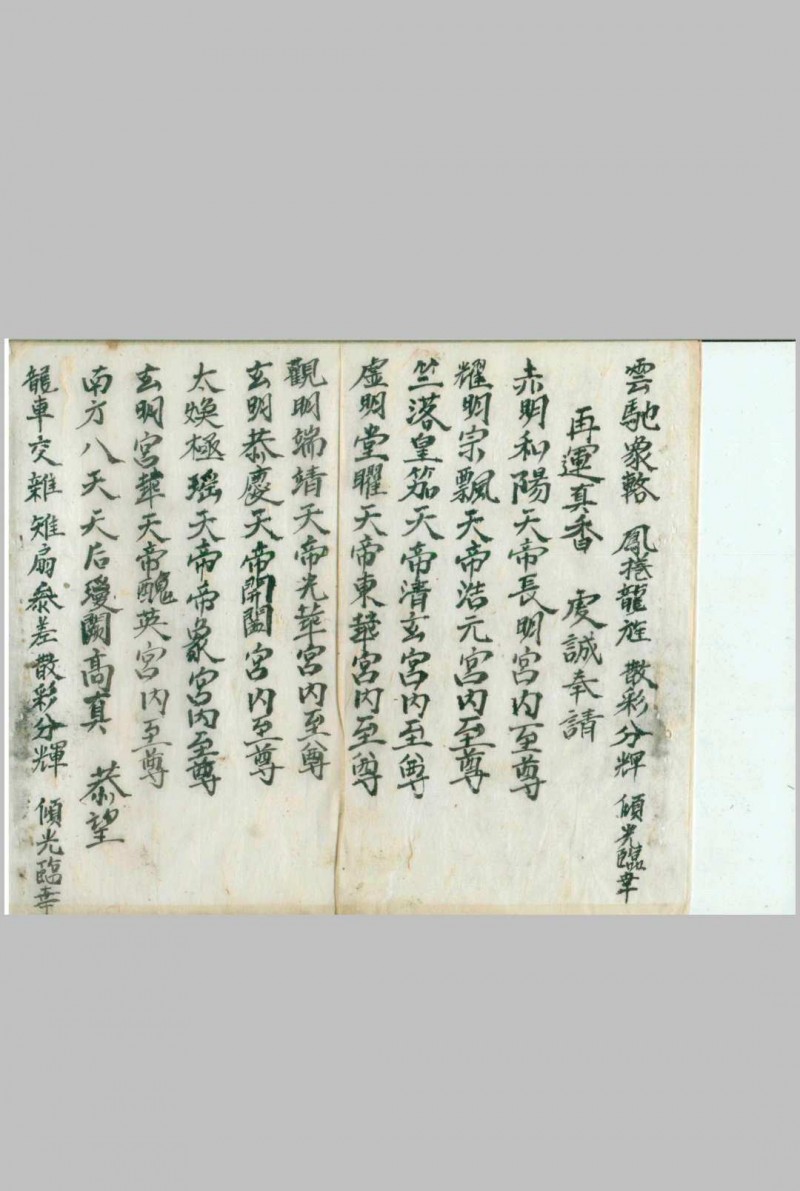 雲馳象輅 鳳捲龍旌 散彩分輝 傾光臨幸
再運真香 虔誠奉請
赤明和陽天帝長明宮內至尊
耀明宗飄天帝浩元宮內至尊
竺落皇笳天帝清玄宮內至尊
虛明堂曜天帝東華宮內至尊
觀明端靖天帝光華宮內至尊
玄明恭慶天帝開闔宮內至尊
太煥極瑶天帝帝象宮內至尊
玄明宮華天帝醜英宮內至尊
南方八天天后瓊闕髙真 恭望
龍車交雜 雉扇叅差 散彩分輝 傾光臨幸